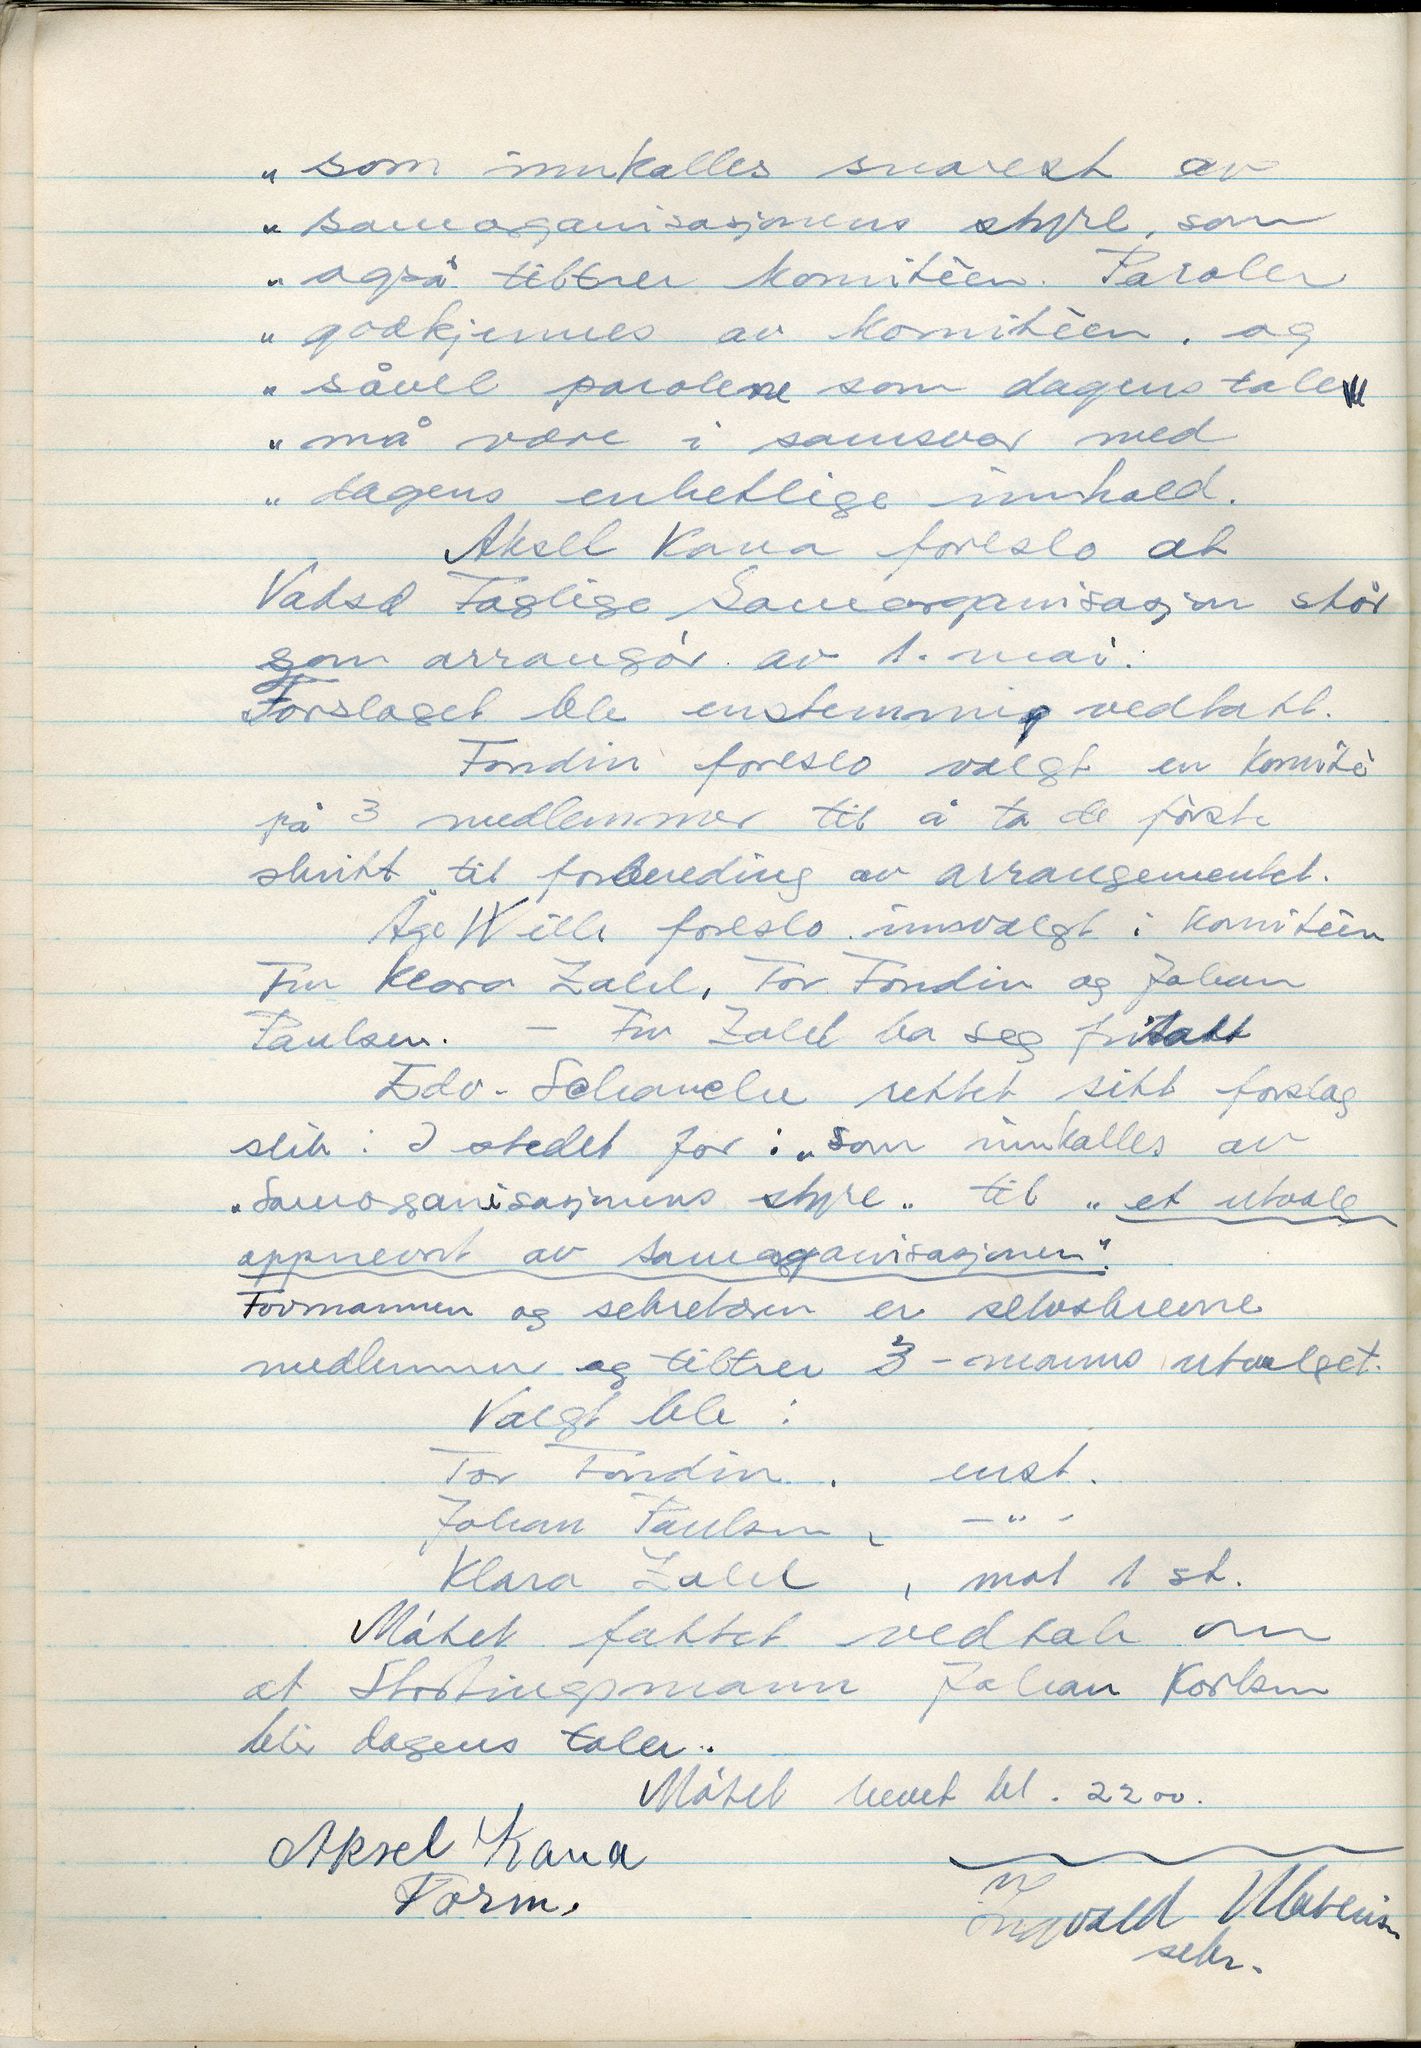 „ som innkalles snarest av
„ samorganisasjonens styre, som
„ også tiltrer komitéen. Paroler
„ godkjennes av komitéen, og
„ såvel parolene som dagens taler
„ må være i samsvar med
„ dagens enhetlige innhold.
Aksel Kana foreslo at
Vadsø Faglige Samorganisasjon står
som arrangør av 1. mai.
Forslaget ble enstemmig vedtatt.
Fondin foreslo valgt en komité
på 3 medlemmer til å ta de første
skritt til forbereding av arrangementet.
Åge Wille foreslo innvalgt i komitéen
Fru Klara Zahl, Tor Fondin og Johan
Paulsen. – Fru Zahl ba seg fritatt
Edv. Schanche rettet sitt forslag
slik: I stedet for: „som innkalles av
„Samorganisasjonens styre„ til „et utvalg
oppnevnt av samorganisasjonen".
Formannen og sekretæren er selvskrevne
medlemmer og tiltrer 3-manns utvalget.
Valgt ble:
Tor Fondin, enst.
Johan Paulsen, –„–
Klara Zahl, mot 1 st.
Møtet fattet vedtak om
at Stortingsmann Johan Karlsen
blir dagens taler.
Møtet hevet kl. 2200.
Aksel Kana
Form.
Ingvald Mathisen
sekr.